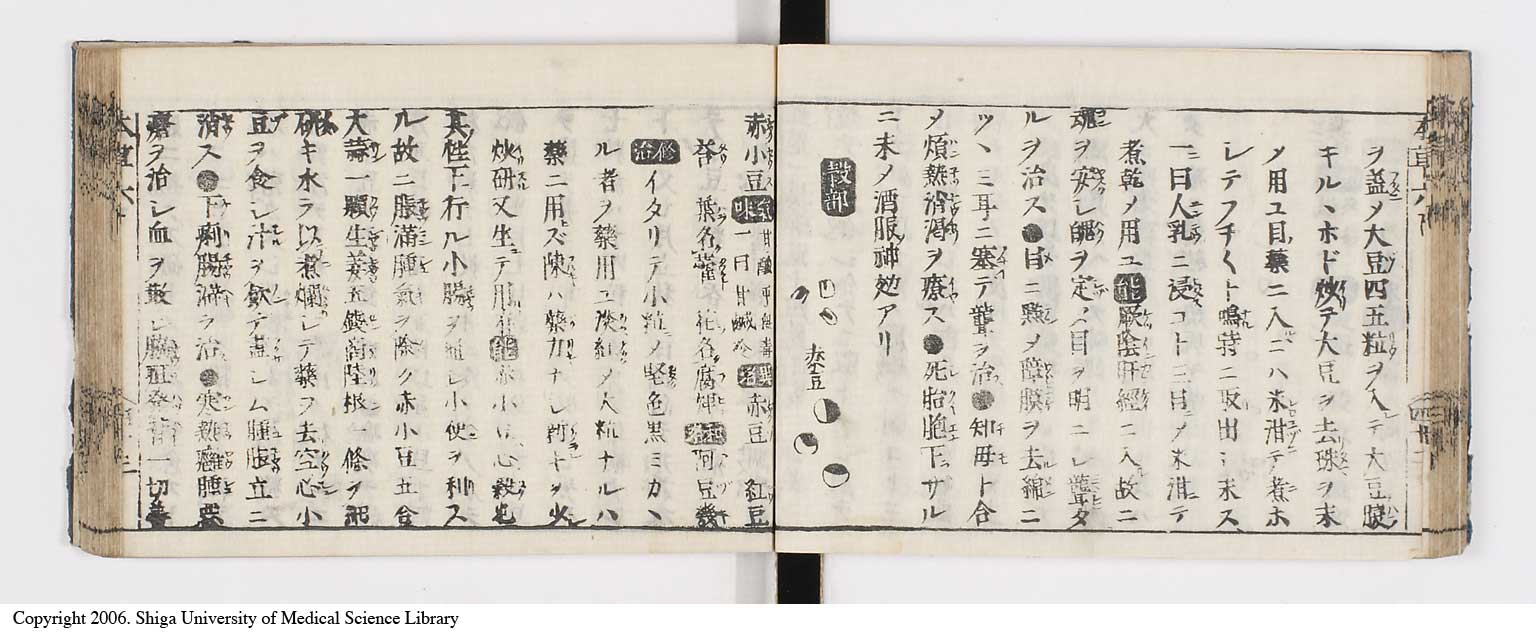 ヲ蓋メ大豆四五粒ヲ入テ大豆腹
キルヽホド炒テ大豆ヲ去珠ヲ末
メ用ユ目藥ニ入ニハ米泔テ煮ホ
レテフチ〱ト鳴時ニ取出シ末ス
一曰人乳ニ浸コト三日メ米泔テ
煮乾メ用ユ能厥陰肝經ニ入故ニ
魂ヲ安シ魄ヲ定メ目ヲ明ニシ聾タ
ルヲ治ス●目ニ點メ障膜ヲ去綿ニ
ツヽミ耳ニ塞テ聾ヲ治●知母ト合
メ煩熱消渇ヲ療ス●死胎胞下サル
ニ末メ酒服神効アリ
穀部
赤豆
赤小豆 氣味 甘酸平無毒 一曰甘鹹冷 異名 赤豆 紅豆
荅 葉名藿 花名腐婢 和名 阿豆幾
修治 イタリテ小粒メ堅色黒ミカヽ
ル者ヲ藥用ユ淡紅メ大粒ナルハ
藥ニ用ズ陳ハ藥力ナシ
炒研又生テ用 能赤小豆心穀也
其性下行ル小腸ヲ通シ小便ヲ利ス
ル故ニ脹滿腫氣ヲ除ク赤小豆五合
大蒜一顆生姜五錢商陸根一條ヲ
碎キ水ヲ以煮爛シテ藥ヲ去空心小
豆ヲ食シ汁ヲ飲テ盡シム腫
消ス●下痢腸澼ヲ治●寒熱癰腫惡
瘡ヲ治シ血ヲ散シ